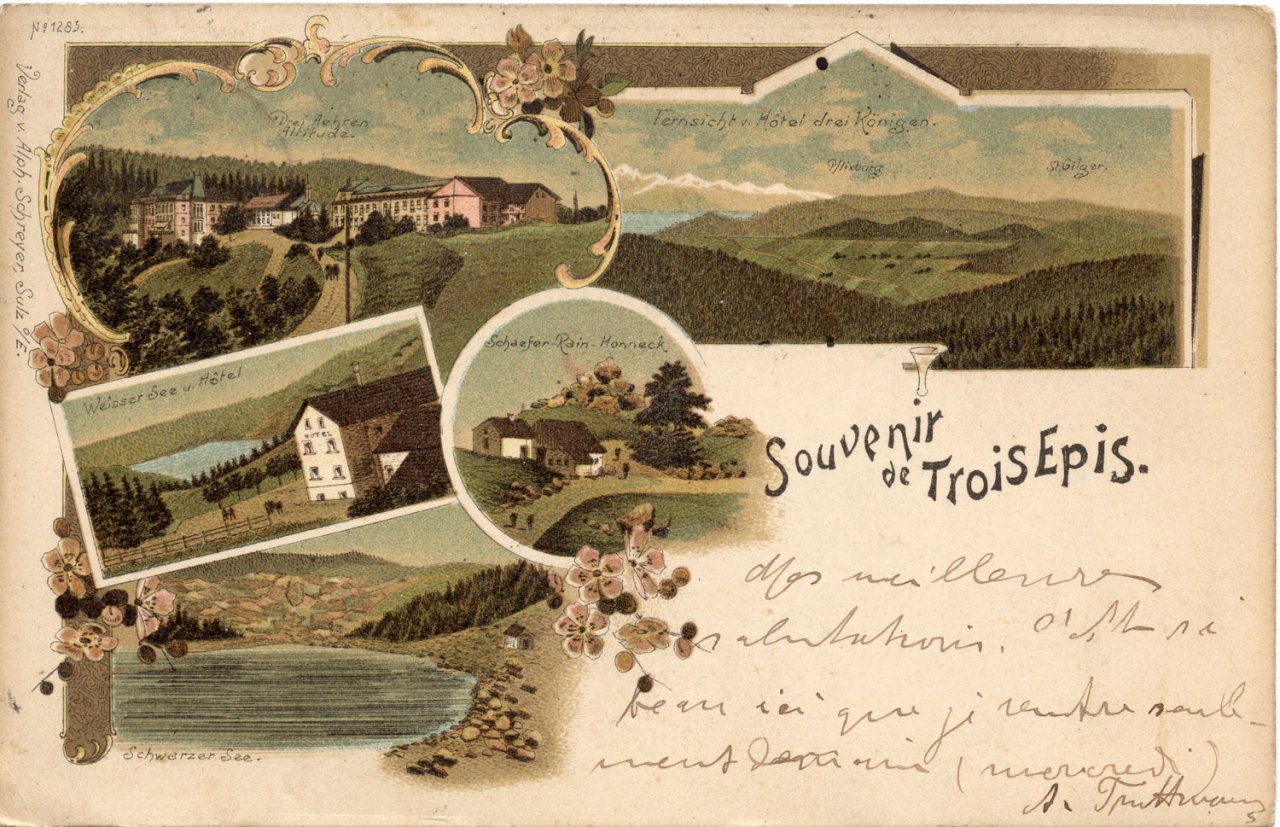 No 1283.
Verlag v. Alph. Schreyer, Sulz o/E.
Drei Aehren
Altitude.
Fernsicht v. Hôtel drei Königen.
Pflixburg
St. Gilger.
Weisser See u. Hôtel
HOTEL
Schaefer-Rain-Honneck
Schwarzer See.
Souvenir
de Trois Epis.
Mes meilleures
salutations. C'est si
beau ici que je rentre seule-
ment demain (mercredi)
A.